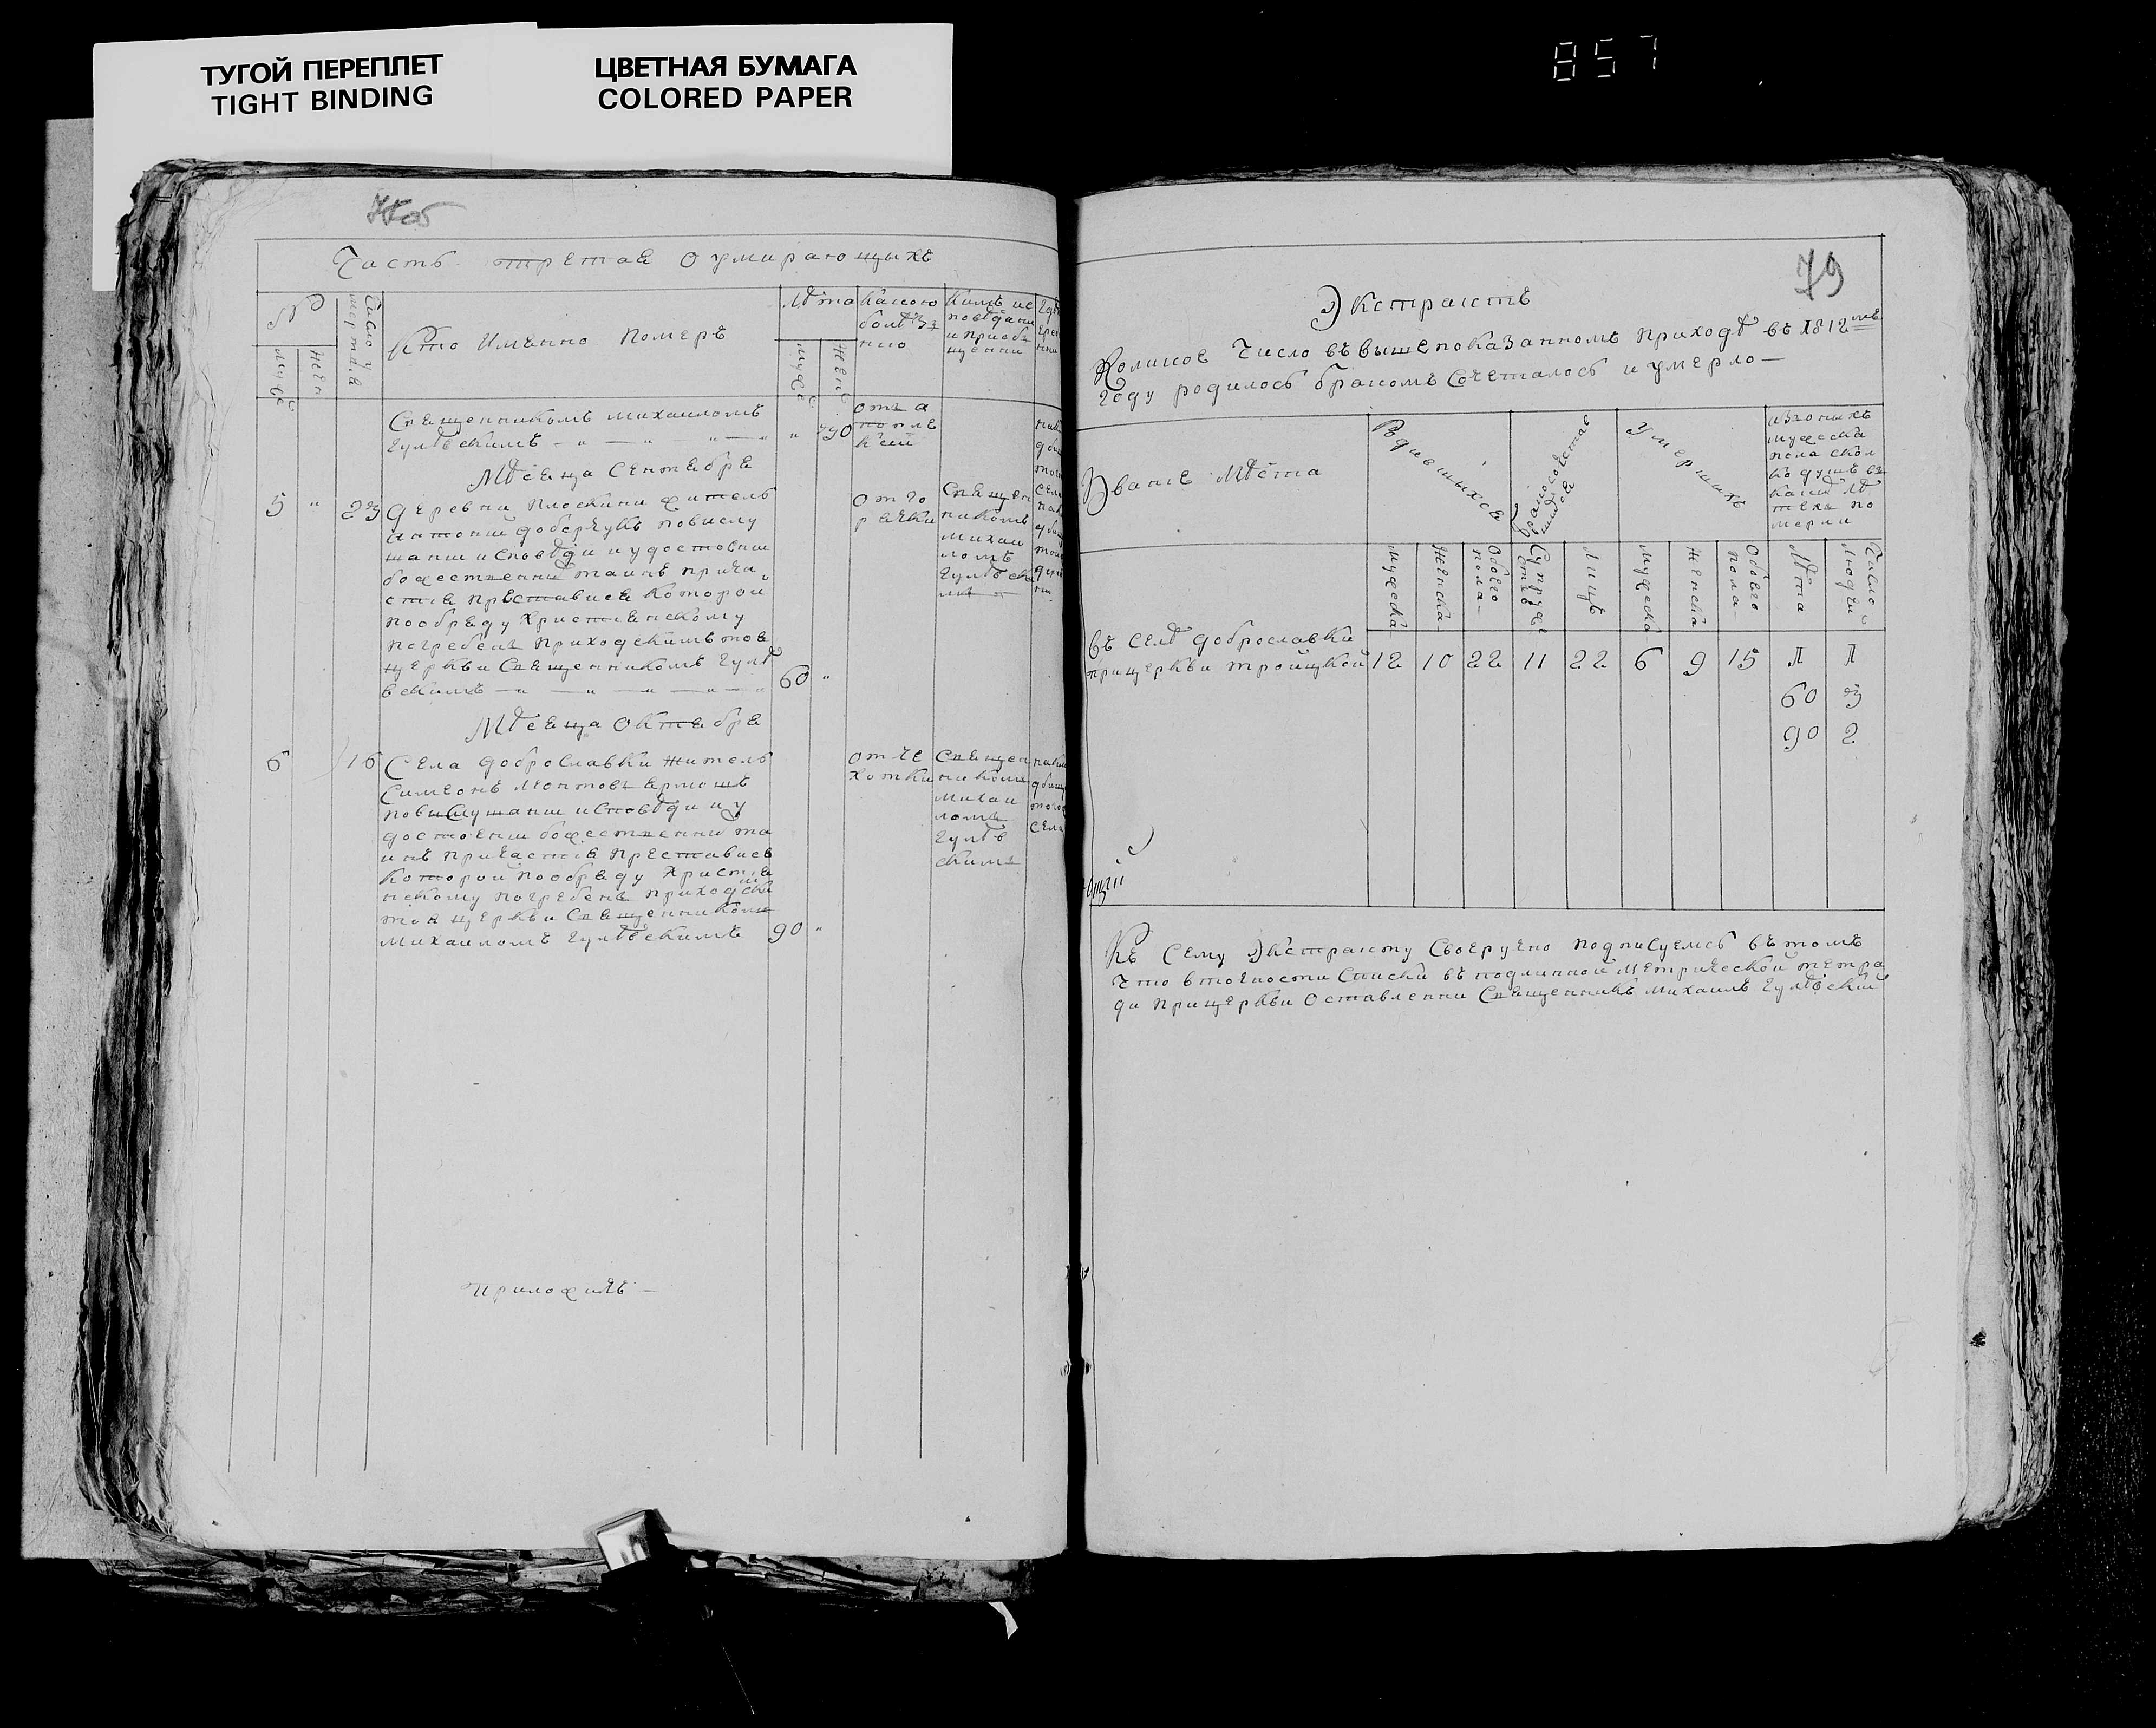 ТУГОЙ ПЕРЕПЛЕТ
TIGHT BINDING
ЦВЕТНАЯ БУМАГА
COLORED PAPER
857
Часть третая о умирающыхъ
№
муж
жен
Число умертвія
Кто Имънно померъ
Лѣта
муж
жен
Какою
болѣз
нію
Кимъ ис
повѣдани
и приобъ
щенни
Священникомъ Михаиломъ
Гулѣвскимъ
790
Мѣсяца Сентября
5 " 23
деревни Плоскини житель
Антоній доберчукъ повислу
шании исповѣди и удостоении
божественни таинъ прича
стія преставися которои
пообряду Християнскому
погребенъ приходскимъ тоя
церкви Священникомъ Гулѣ
вскимъ
60 "
от го
рячки
Священ
никомъ
Михаи
ломъ
Гулѣвски
мъ
Мѣсяца Октября
6 16
Села доброславки житель
Симеонъ
повислушании исповѣди и у
достоении божественни та
инъ причастія преставися
которои пообряду Христия
нскому погребенъ приходски
тоя церкви Священникомъ
Михаиломъ Гулѣвскимъ
90 "
от че
хотки
Священ
никомъ
Михаи
ломъ
Гулѣв
скимъ
приложилъ
79
Экстрактъ
Коликое Число въ вышепоказанномъ приходѣ въ 1812мъ
Году родилось бракомъ сочеталось и умерло
Званіе Мѣста
Родившыхся
Умершыхъ
изъ оныхъ
мужеска
пола скол
ко душъ въ
каких лѣ
техъ по
мерли
мужеска
женска
Обоего пола
Супружествъ
Лицъ
мужеска
женска
Обоего пола
Лѣта
Число людей
въ селѣ доброславки
прицеркви троицкой 12 10 22 11 22 6 9 15 Л Л
60 3
90 2
Къ сему Экстракту своеручно подписуемсь въ томъ
Что в точности списки въ подлинной метрической тетра
ди прицеркви оставленни Священникъ Михаилъ Гулѣвский